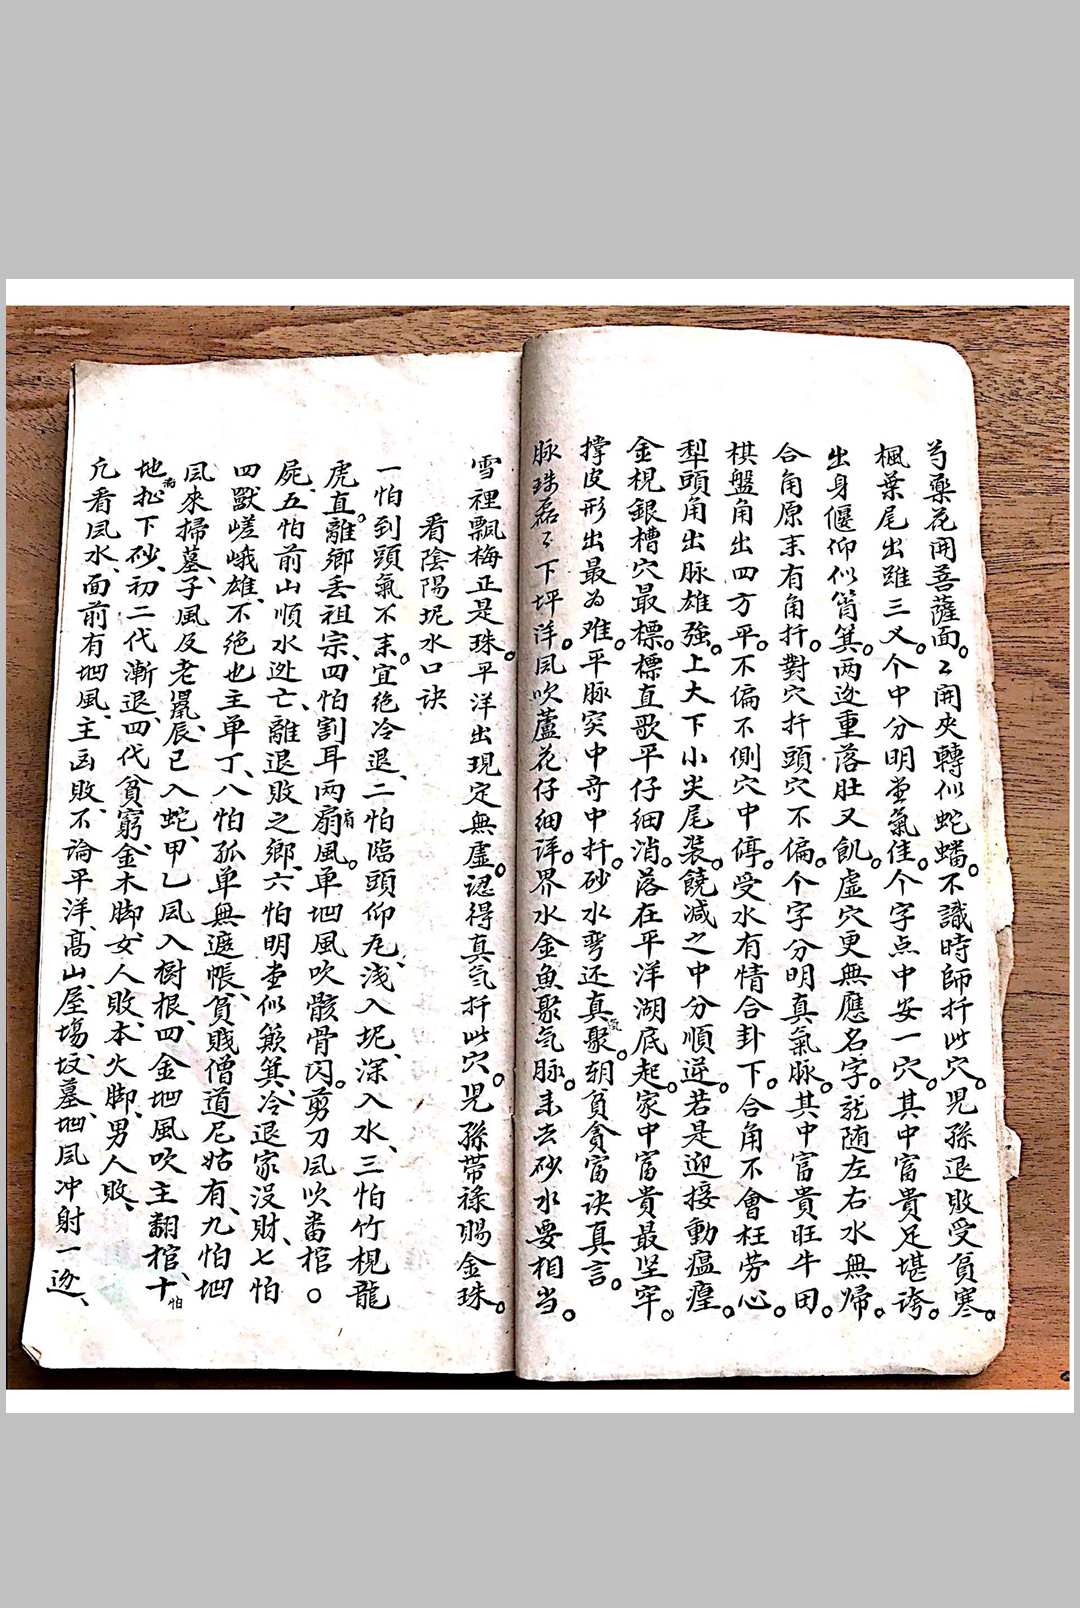 芍藥花開菩薩面。〻開夾轉似蛇蟠。不識時師扦此穴。児孫退敗受貧寒。
楓葉尾出雖三叉。个中分明堂氣佳。个字点中安一穴。其中富貴足堪誇。
出身偃仰似筲箕。两边重落肚又飢。虛穴更無應名字。龍随左右水無歸。
合角原来有角扦。對穴扦頭穴不偏。个字分明真氣脉。其中富貴旺牛田。
棋盤角出四方平。不偏不側穴中停。受水有情合卦下。合角不會枉劳心。
犁頭角出脉雄強。上大下小尖尾装。饒减之中分順逆。若是迎接動瘟𤶊。
金梘銀槽穴最標。標直歌平仔细消。落在平洋湖底起。家中富貴最坚牢。
撑皮形出最为难。平脉突中奇中扦。砂水弯还真氣聚。朝貧貪富诀真言。
脉珠磊〻下坪洋。凨吹蘆花仔细详。界水金魚聚气脉。来去砂水要相当。
雪裡飄梅正是珠。平洋出現定無虛。認得真气扦此穴。児孫带祿賜金珠。
看陰陽坭水口诀
一怕到頭氣不来。宜绝冷退、二怕臨頭仰瓦、浅入坭、深入水、三怕竹梘龍
虎直。離鄉丢祖宗、四怕割耳两肩扇風。单凹風吹骸骨闪。剪刀凨吹畨棺。
屍、五怕前山順水迯亡、離退敗之鄉、六怕明堂似簸箕、冷退家没財、七怕
四獸嵯峨雄、不绝也主单丁、八怕孤单無遮帳、貧贱僧道尼姑有、九怕凹
凨來掃墓、子風及老鼠、辰巳入蛇、甲乙凨入樹根、四金凹風吹主翻棺、十怕
地扯下砂、初二代漸退、四代貧窮、金木脚、女人敗、本火脚、男人敗、
凢看凨水、面前有凹風、主凶敗、不論平洋、髙山、屋塲坟墓、凹凨冲射一边、